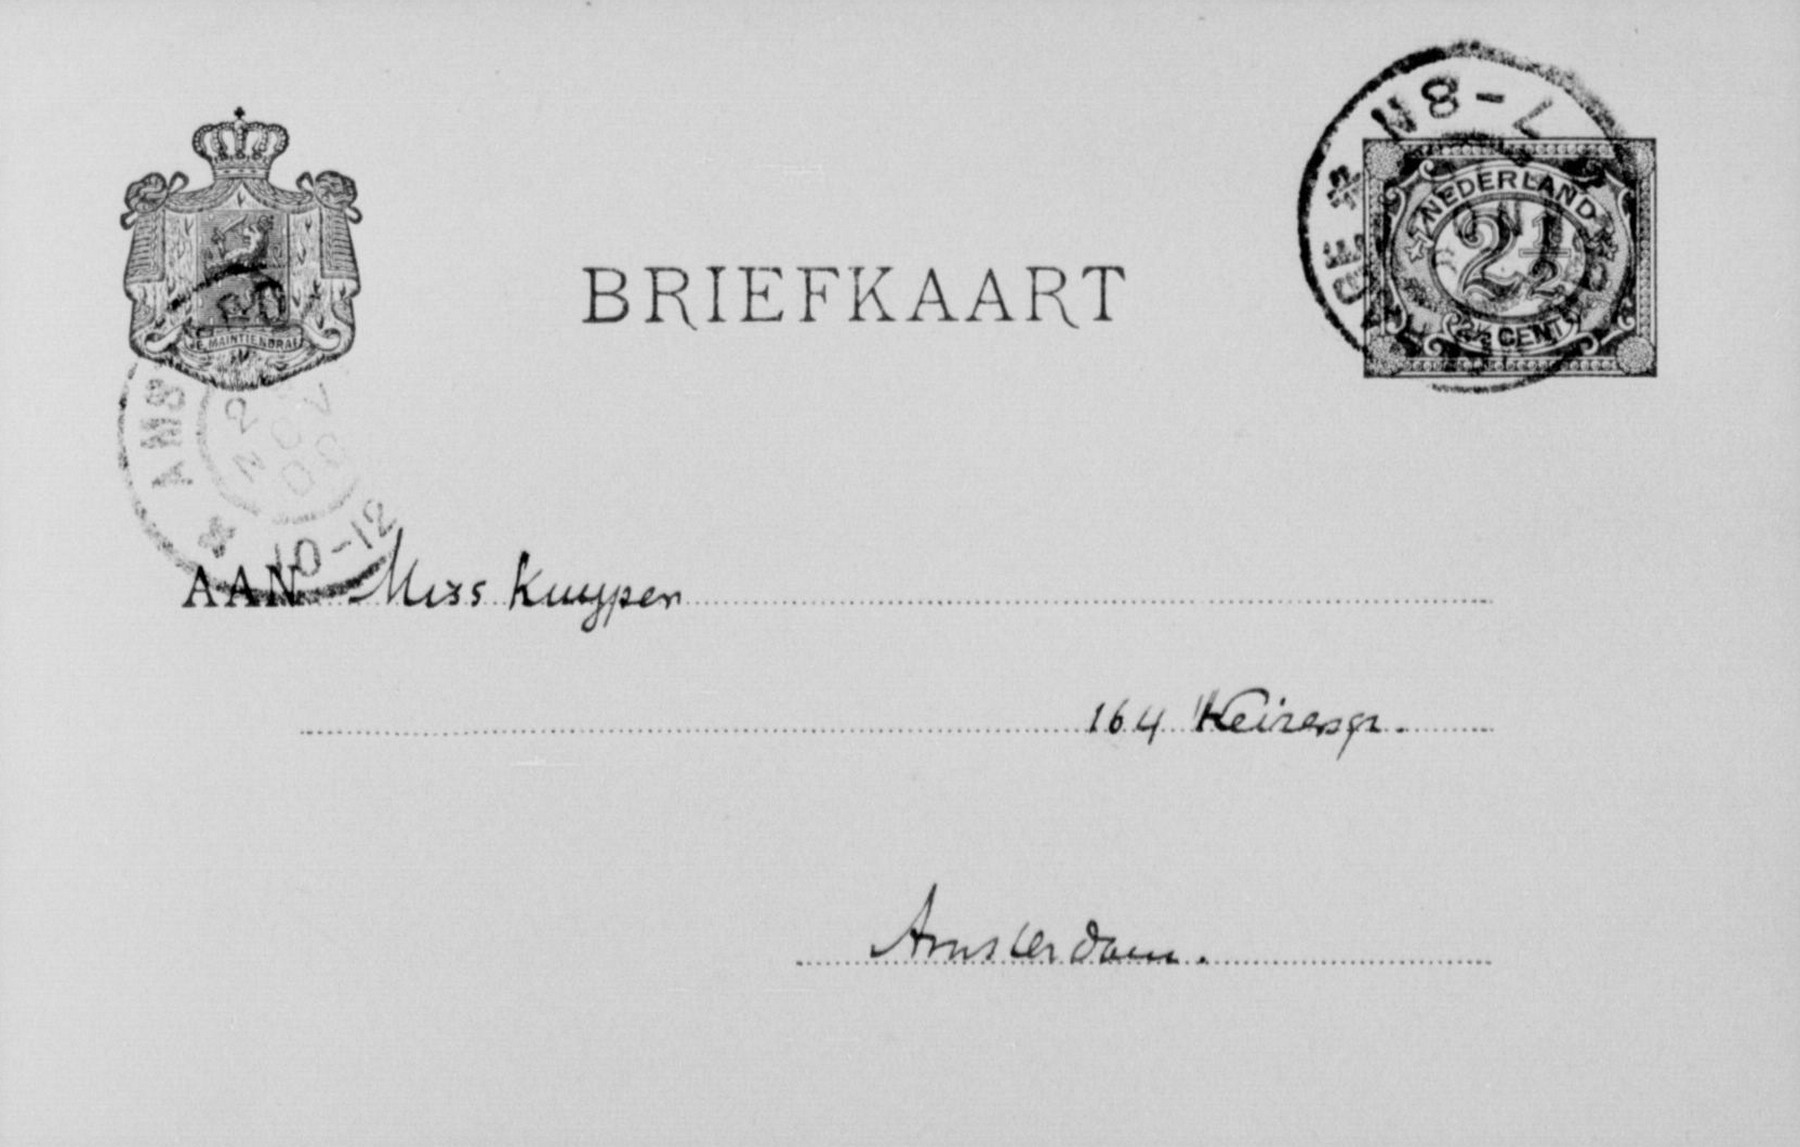 N 8-
NEDERLAND
2½
2½ CENT
BRIEFKAART
JE MAINTIENDRAI
AMS
2 NOV 00
10-12
AAN Miss Kuyper
164 Keizersgr.
Amsterdam.